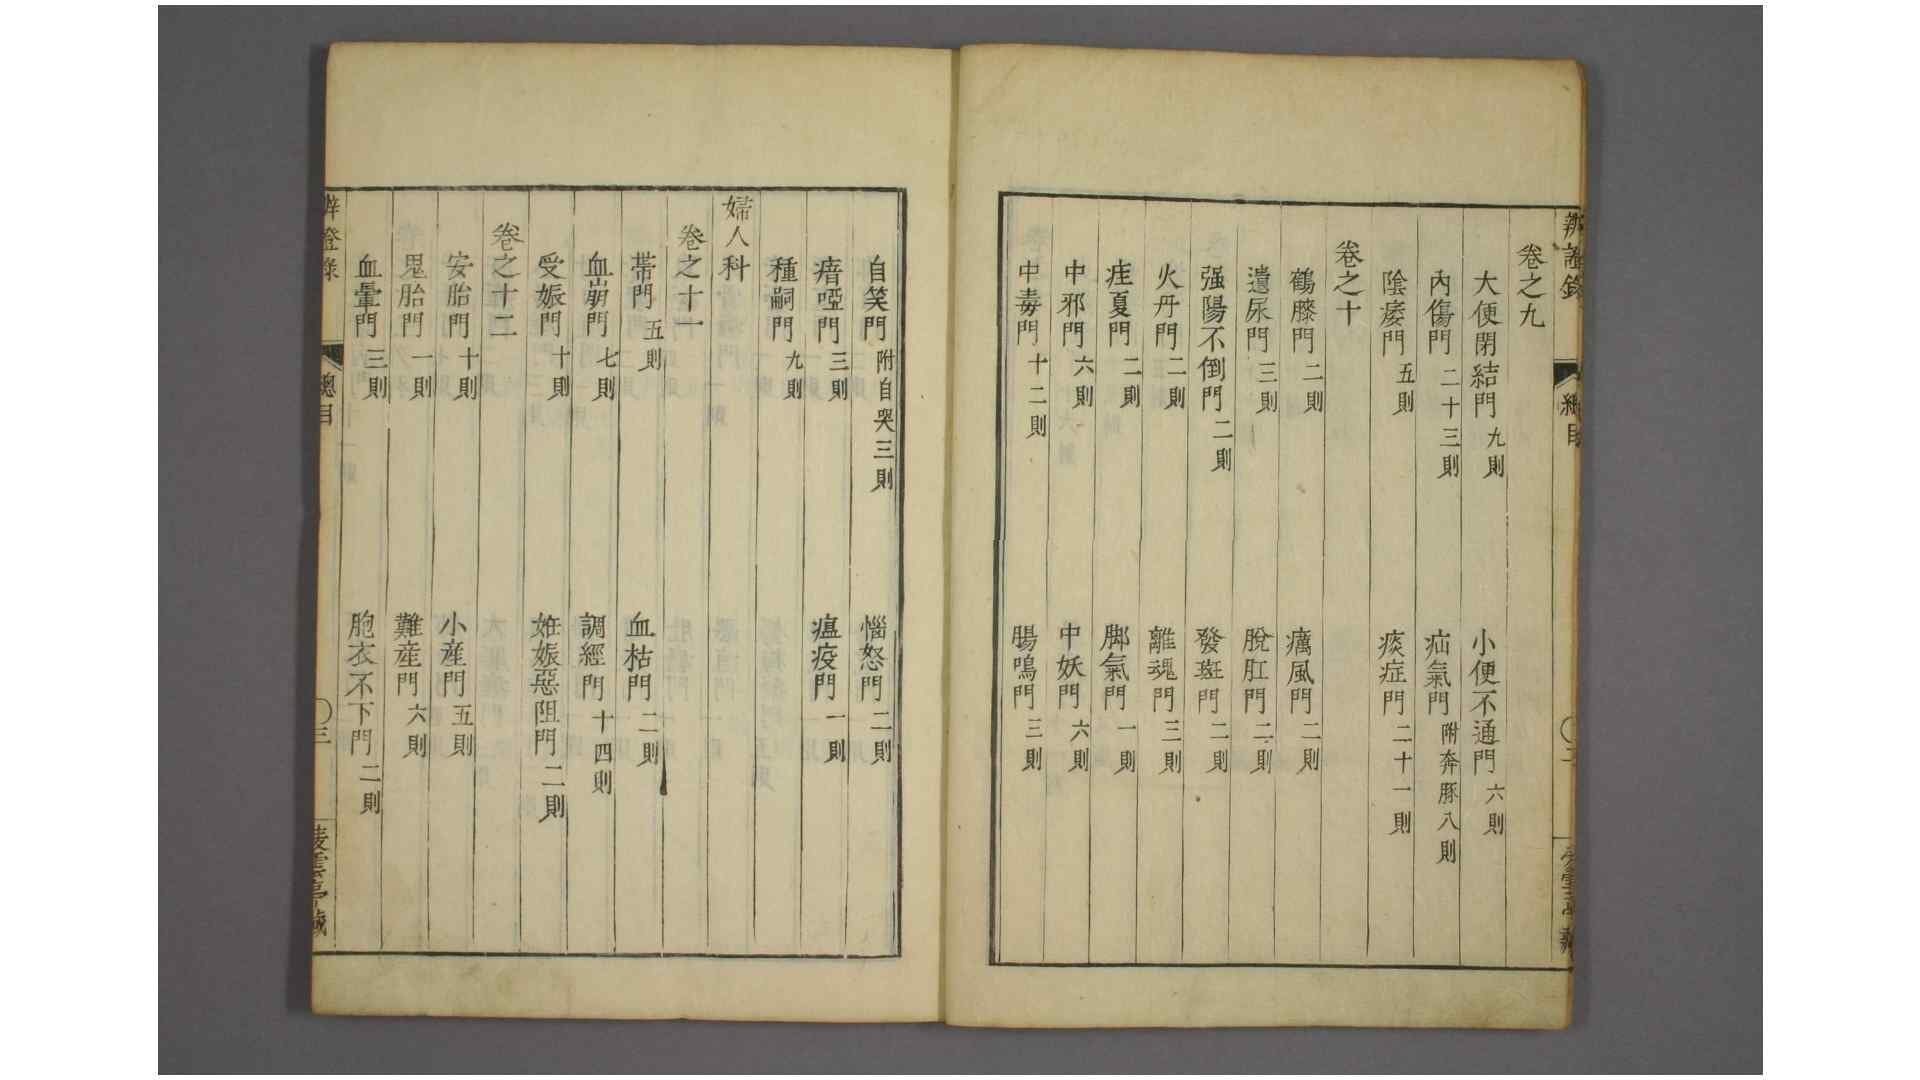 卷之九
大便閉結門 九則 小便不通門 六則
內傷門 二十三則 疝氣門 附奔豚八則
陰痿門 五則 痰症門 二十一則
卷之十
鶴膝門 二則 癘風門 二則
遺尿門 三則 脫肛門 二則
强陽不倒門 二則 發斑門 二則
火丹門 二則 離魂門 三則
疰夏門 二則 脚氣門 一則
中邪門 六則 中妖門 六則
中毒門 十二則 腸鳴門 三則
自笑門 附自哭三則 惱怒門 二則
瘖啞門 三則 瘟疫門 一則
種嗣門 九則
婦人科
卷之十一
帶門 五則 血枯門 二則
血崩門 七則 調經門 十四則
受娠門 十則 姙娠惡阻門 二則
卷之十二
安胎門 十則 小産門 五則
鬼胎門 一則 難産門 六則
血暈門 三則 胞衣不下門 二則
總目
三